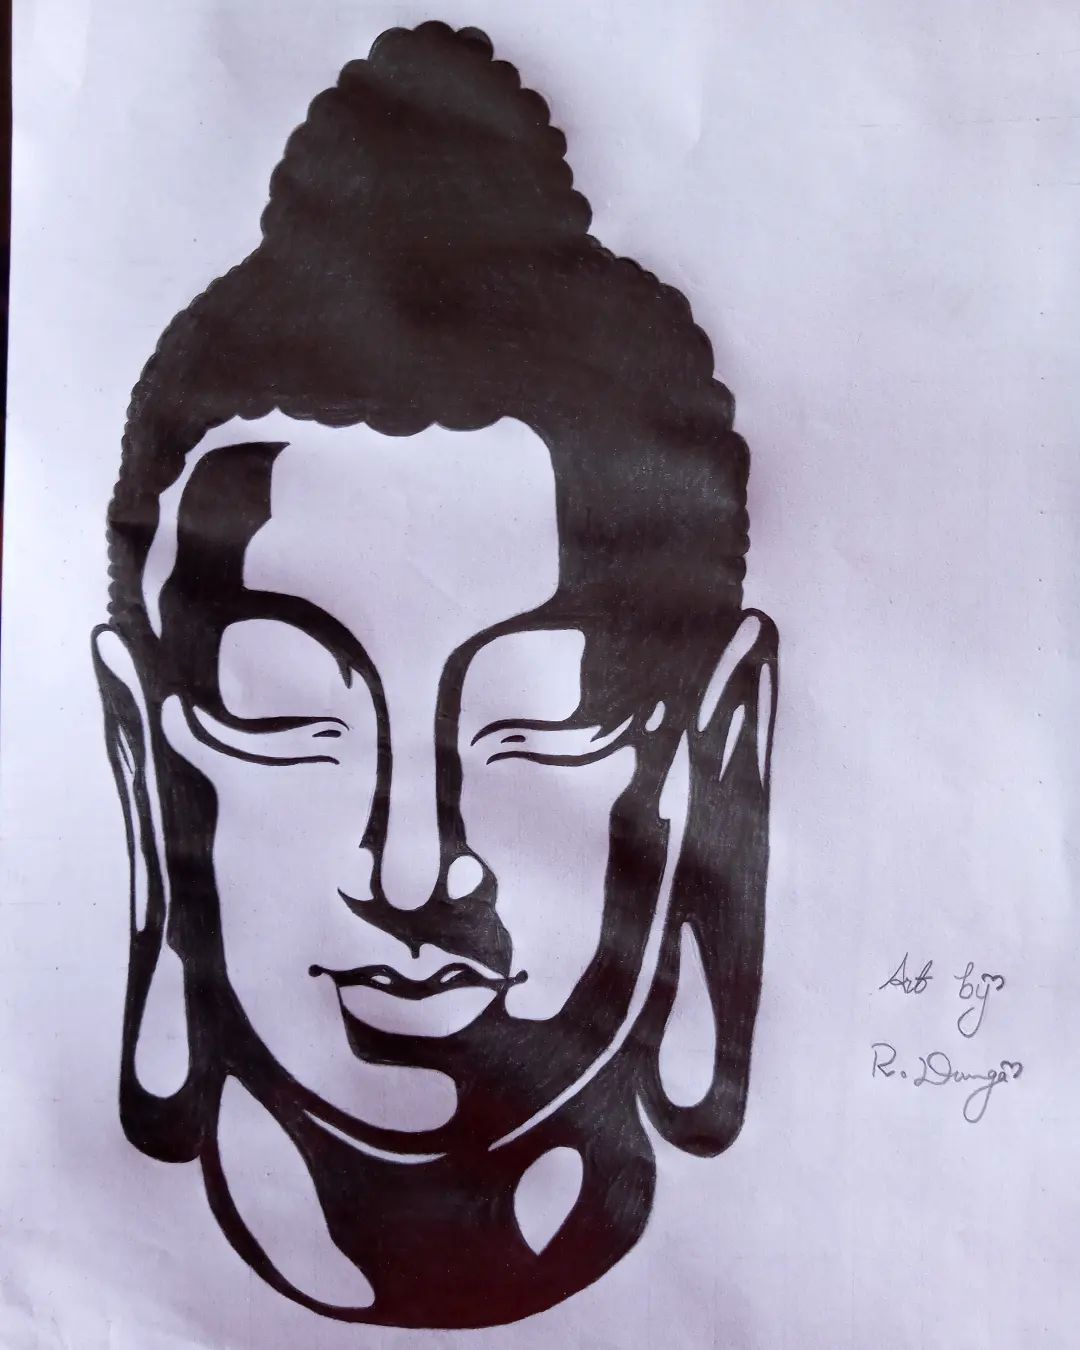 Art by
R. Dunga